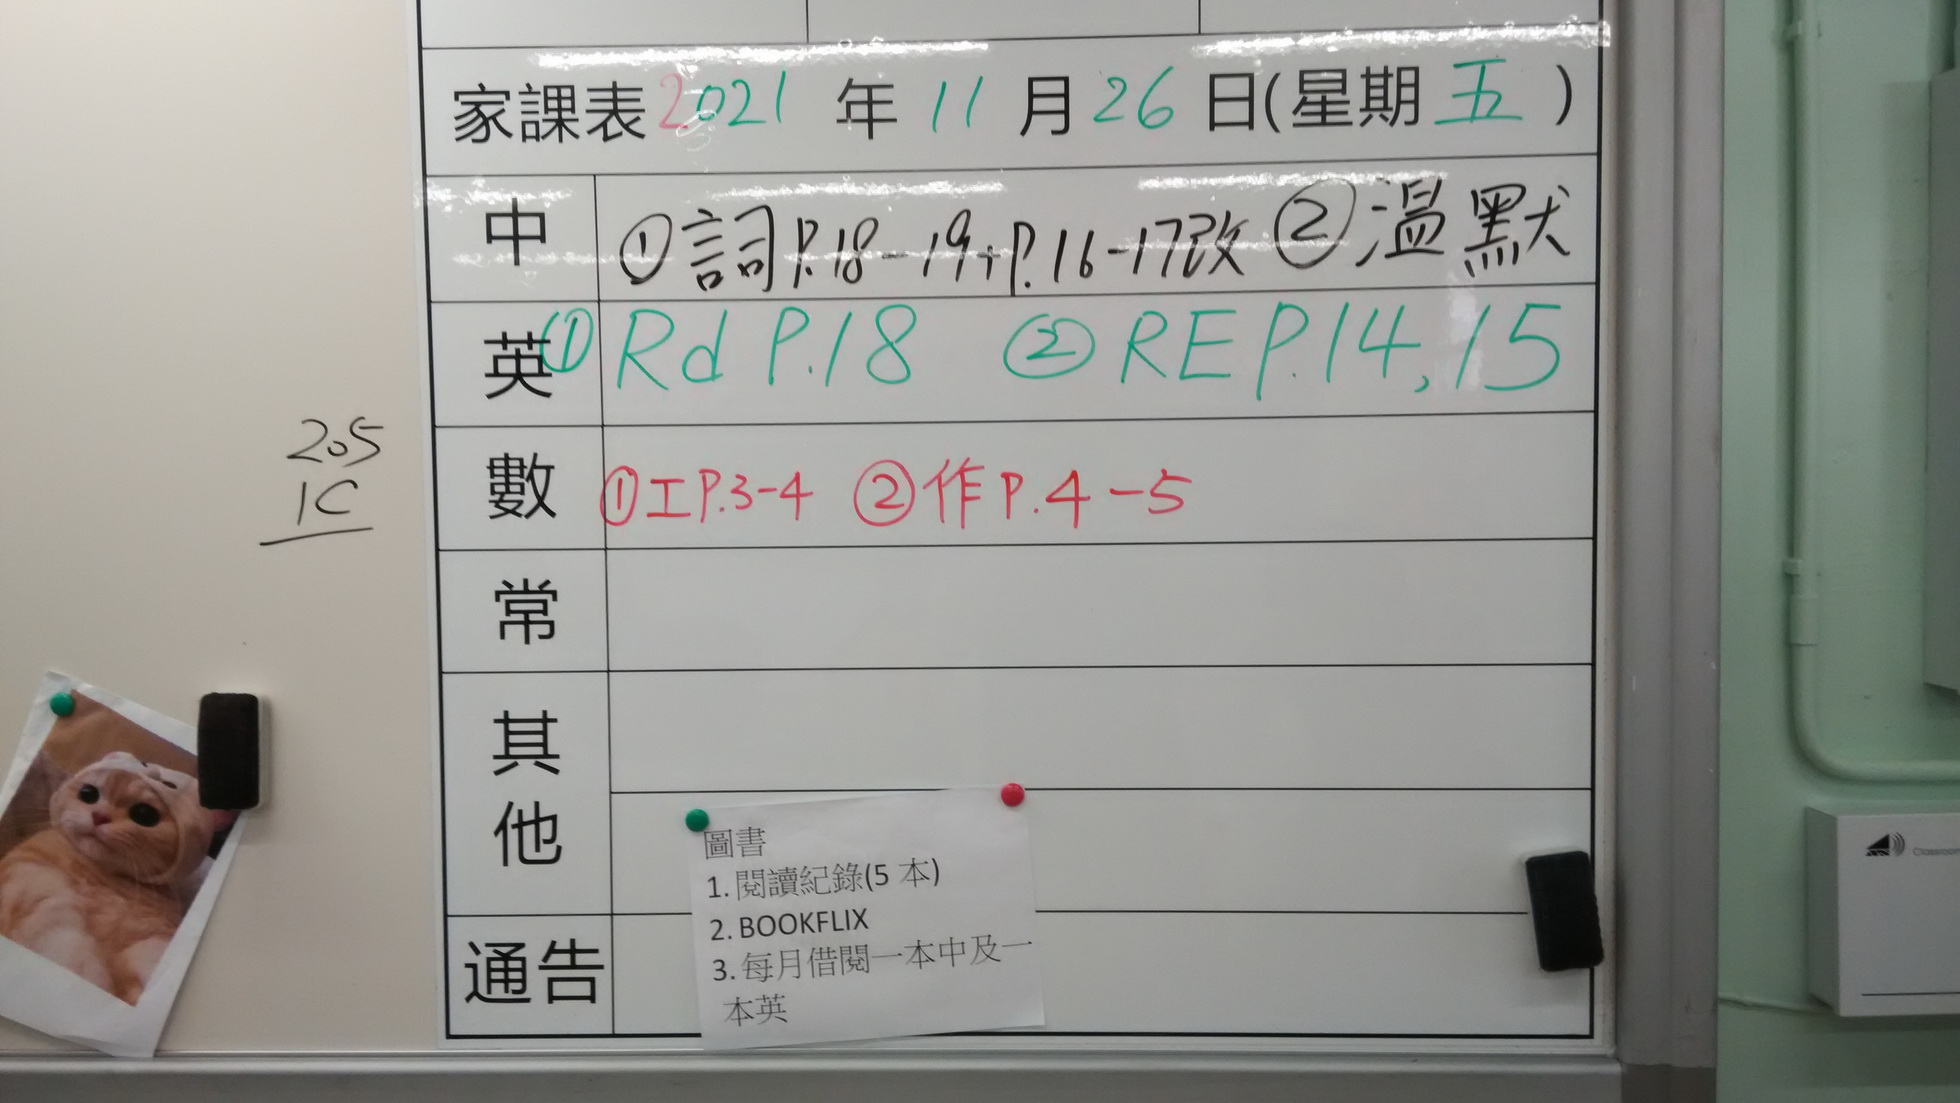 家課表 2021 年 11 月 26 日(星期 五 )
中 ①詞P.18-19+P.16-17改 ②溫默
英 ① Rd P.18 ② RE P.14,15
205
1C
數 ①工P.3-4 ②作P.4-5
常
其他
圖書
1. 閱讀紀錄(5 本)
2. BOOKFLIX
3. 每月借閱一本中及一
本英
通告
Classroom